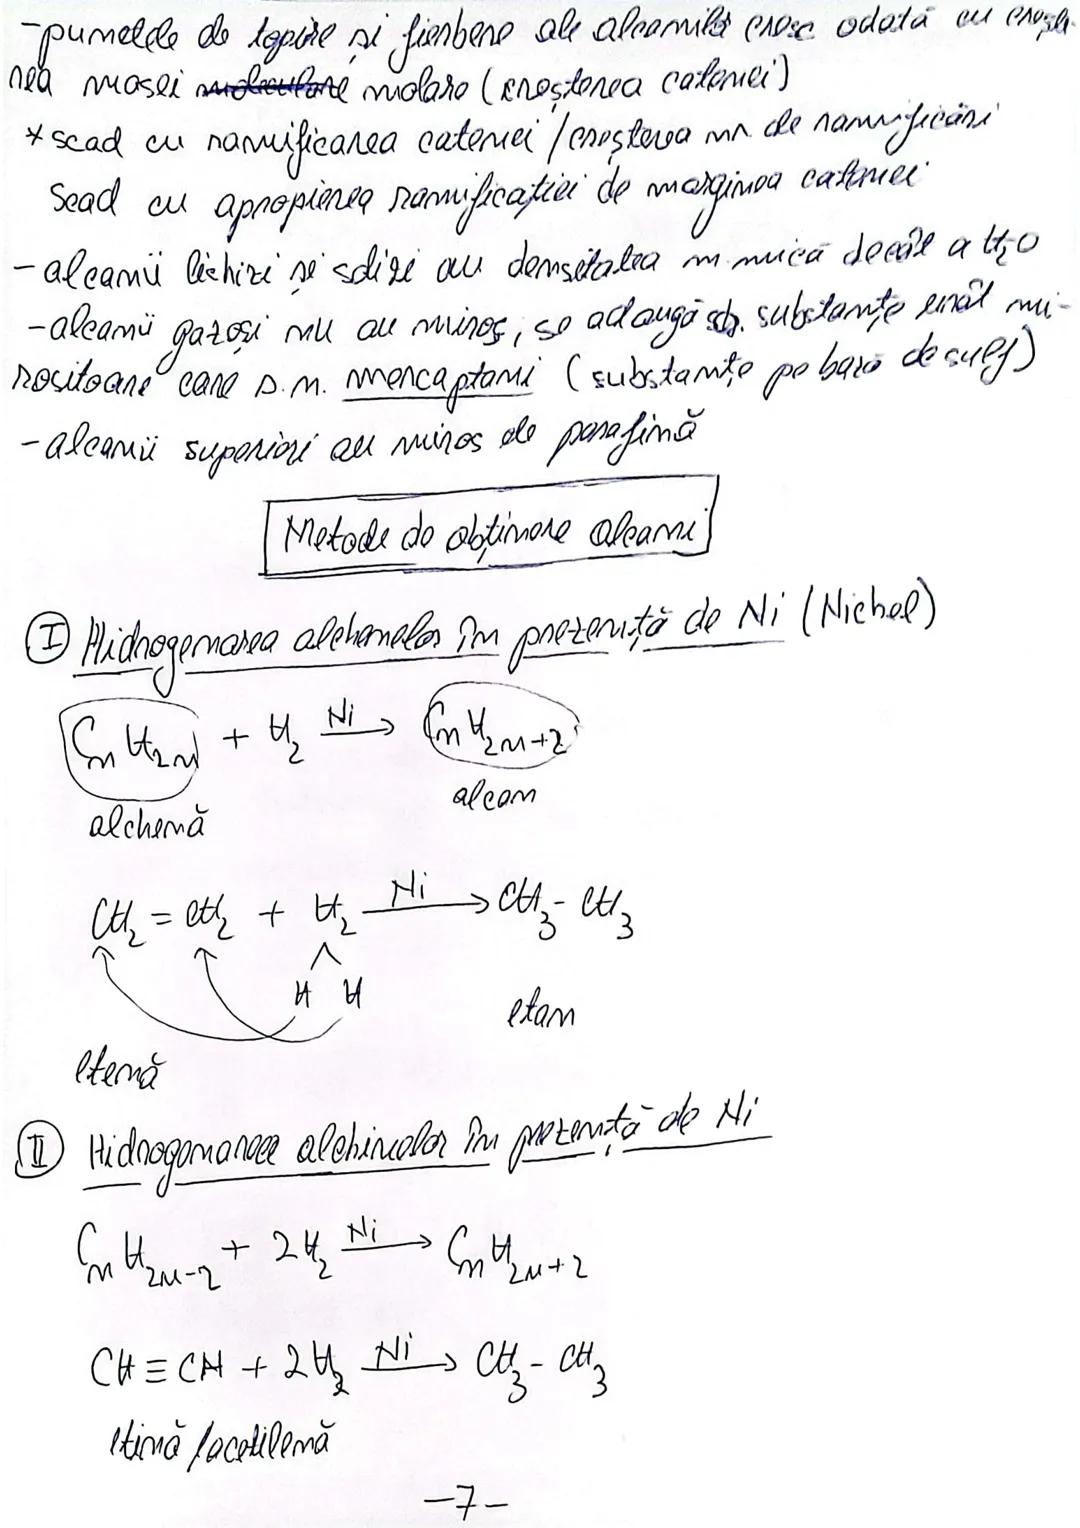 -punctele de topire și fierbere ale alcanilor cresc odată cu crește-
rea masei moleculare molare (creșterea catenei)
* scad cu ramificarea catenei / creșterea nr. de ramificări
scad cu apropierea ramificației de marginea catenei
- alcanii lichizi și solizi au densitatea m. mică decât a H₂O
- alcanii gazoși nu au miros, se adaugă substanțe urât mi-
rositoare care s.m. mercaptani (substanțe pe bază de sulf)
- alcanii superiori au miros de parafină
Metode de obținere alcani
I Hidrogenarea alchenelor în prezență de Ni (Nichel)
CₙH₂ₙ + H₂ Ni→ CₙH₂ₙ₊₂
alchenă alcan
CH₂ = CH₂ + H₂ Ni→ CH₃ - CH₃
H H
etan
etenă
II Hidrogenarea alchinelor în prezență de Ni
CₙH₂ₙ₋₂ + 2H₂ Ni→ CₙH₂ₙ₊₂
CH ≡ CH + 2H₂ Ni→ CH₃ - CH₃
etină /acetilenă
-7-